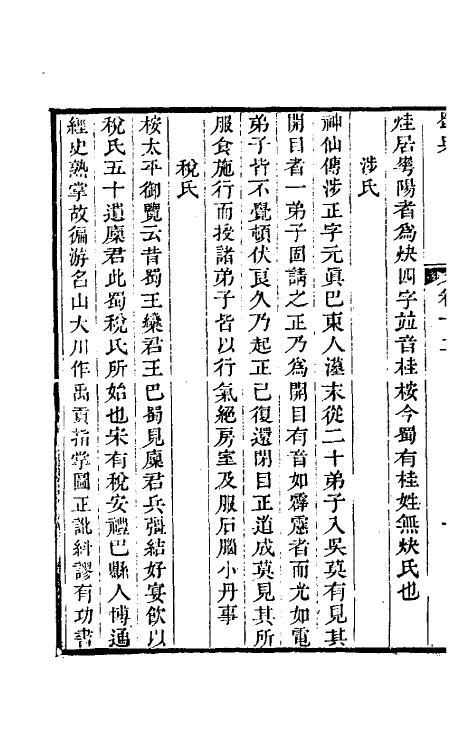 炷居㝵陽者為炔四字竝音桂桉今蜀有桂姓無炔氏也
涉氏
神仙傳涉正字元真巴東人漢末從二十弟子入吳莫有見其
開目者一弟子固請之正乃為開目有音如霹靂者而光如電
弟子皆不覺頓伏良久乃起正已復還閉目正道成莫見其所
服食施行而授諸弟子皆以行氣絕房室及服石腦小丹事
稅氏
桉太平御覽云昔蜀王欒君王巴蜀見廩君兵彊結好宴飲以
稅氏五十遺廩君此蜀稅氏所始也宋有稅安禮巴縣人博通
經史熟掌故徧游名山大川作禹貢指掌圖正訛糾謬有功書